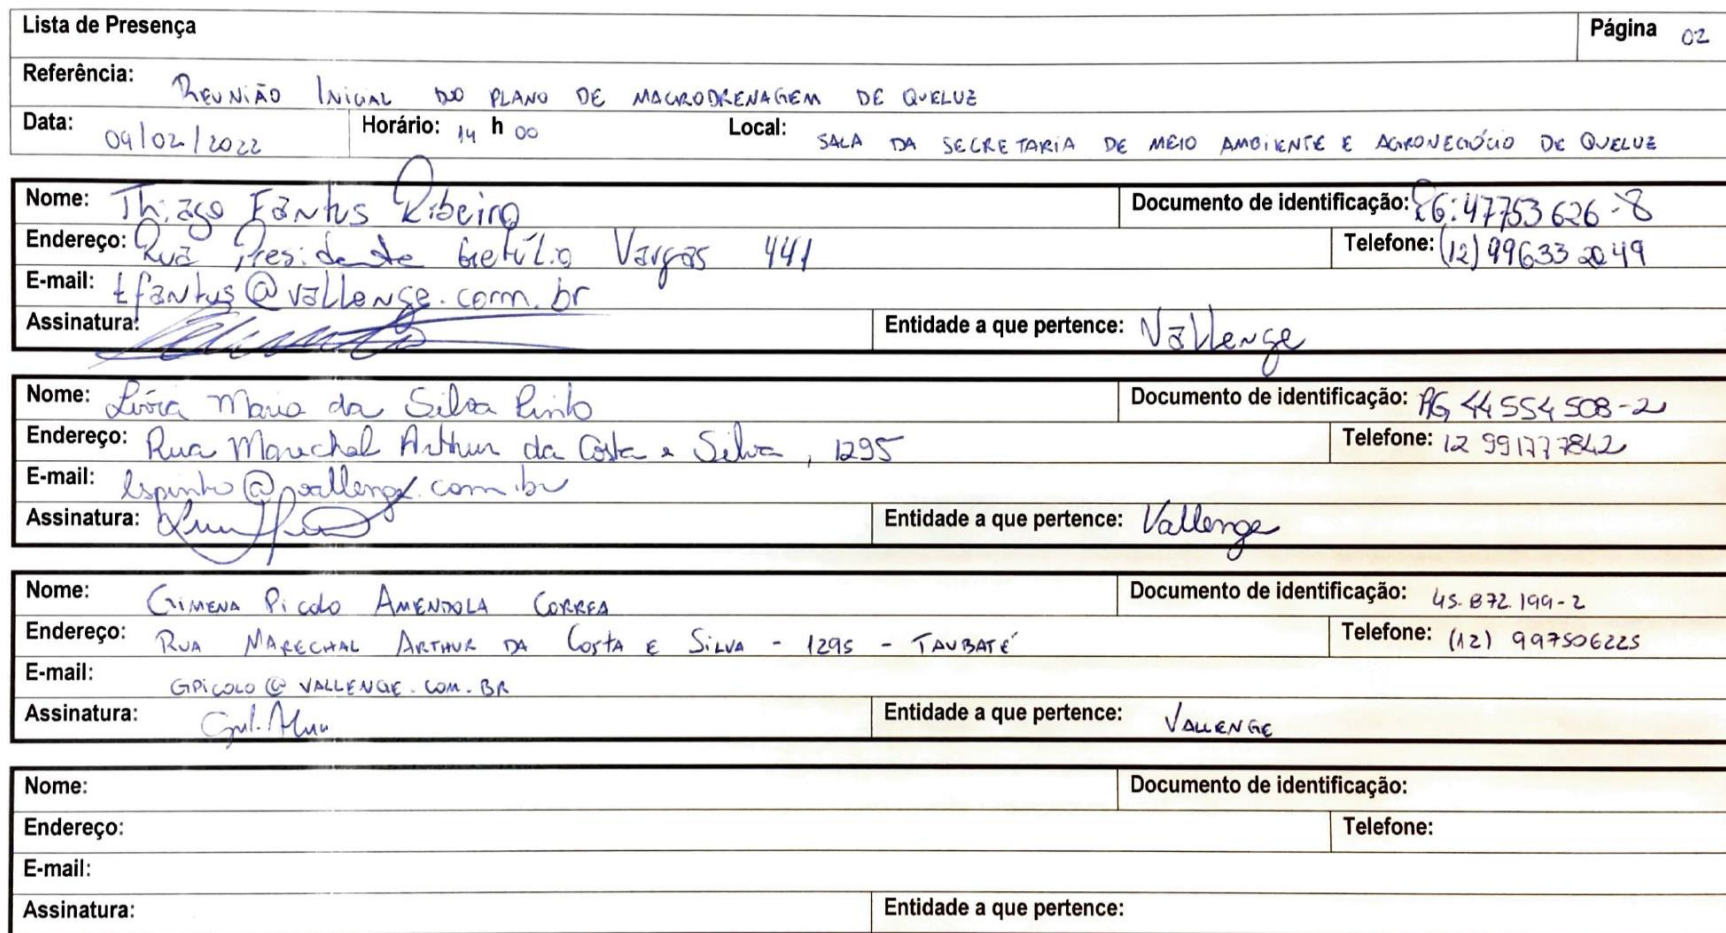 Lista de Presença Página 02
Referência: REUNIÃO INICIAL DO PLANO DE MACRODRENAGEM DE QUELUZ
Data: 09/02/2022 Horário: 14 h 00 Local: SALA DA SECRETARIA DE MEIO AMBIENTE E AGRONEGÓCIO DE QUELUZ
Nome: Thiago Fantus Ribeiro Documento de identificação: RG: 47753626-8
Endereço: Rua Presidente Getúlio Vargas 441 Telefone: (12) 99633 2049
E-mail: tfantus@vallenge.com.br
Assinatura: Entidade a que pertence: Vallenge
Nome: Lívia Maria da Silva Pinto Documento de identificação: RG 44554508-2
Endereço: Rua Marechal Arthur da Costa e Silva, 1295 Telefone: 12 991777842
E-mail: lspinto@vallenge.com.br
Assinatura: Entidade a que pertence: Vallenge
Nome: GIMENA PICOLO AMENDOLA CORREA Documento de identificação: 45.872.199-2
Endereço: RUA MARECHAL ARTHUR DA COSTA E SILVA - 1295 - TAUBATÉ Telefone: (12) 997506225
E-mail: GPICOLO@VALLENGE.COM.BR
Assinatura: Entidade a que pertence: VALLENGE
Nome: Documento de identificação:
Endereço: Telefone:
E-mail:
Assinatura: Entidade a que pertence: